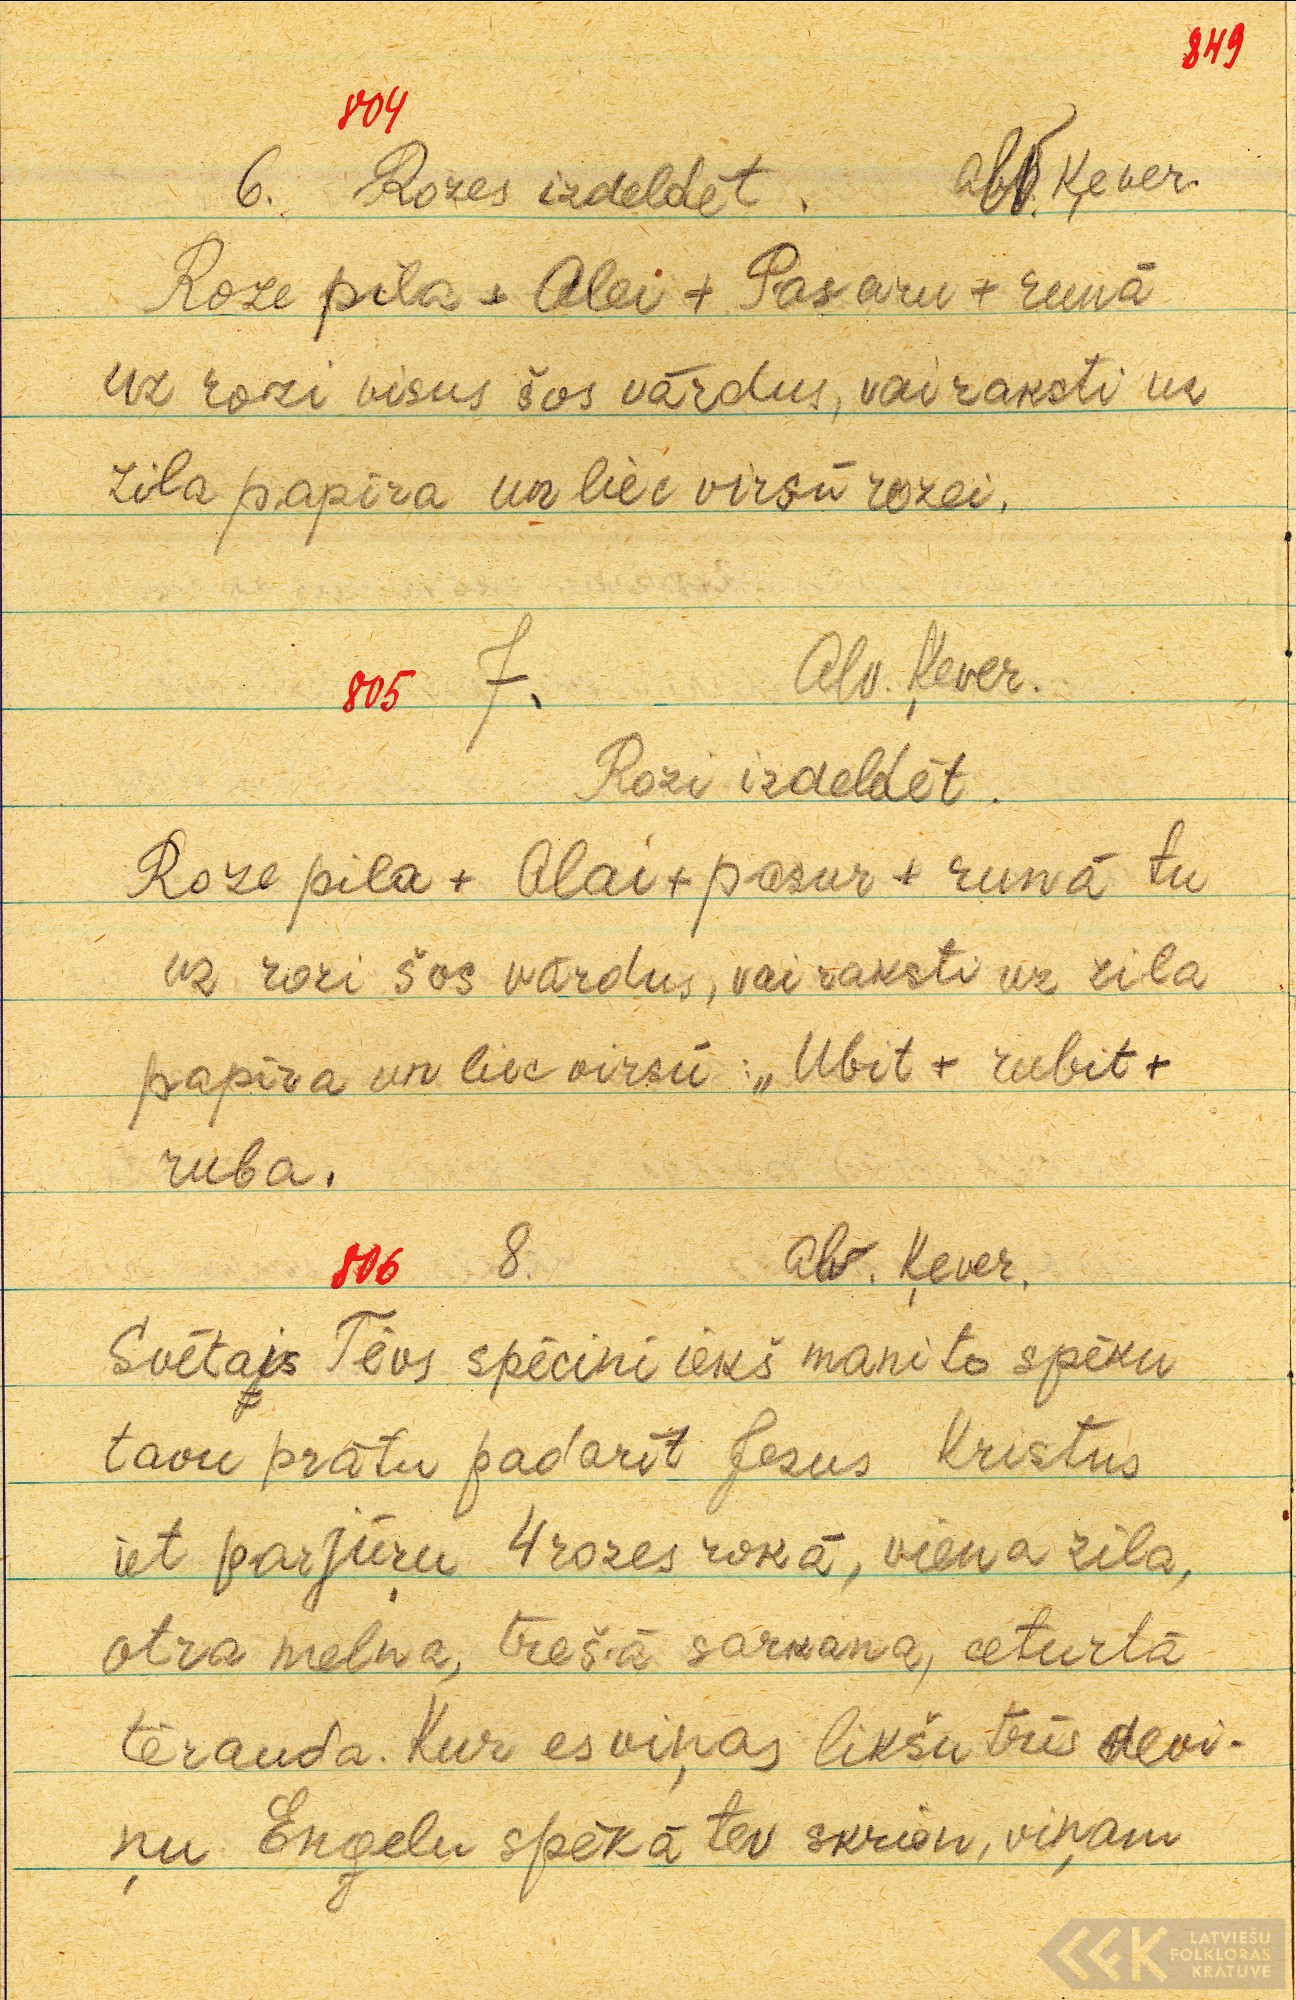 849
804
6. Rozes izdeldēt. Alv. Ķever.
Roze pila + Alei + Pasaru + runā
uz rozi visus šos vārdus, vai raksti uz
zila papīra un liec virsū rozei.
805 7. Alv. Ķever.
Rozi izdeldēt.
Roze pila + Alai + pasur + runā tu
uz rozi šos vārdus, vai raksti uz zila
papīra un liec virsū: „Ubit + rubit +
ruba.
806 8. Alv. Ķever.
Svētais Tēvs spēcini iekš mani to spēku
tavu prātu padarīt Jesus Kristus
iet par jūŗu 4 rozes rokā, viena zila,
otra melna, trešā sarkana, ceturtā
tērauda. Kur es viņas likšu trīs devi-
ņu Enģelu spēkā tev skrien, viņam
LATVIEŠU
FOLKLORAS
KRĀTUVE